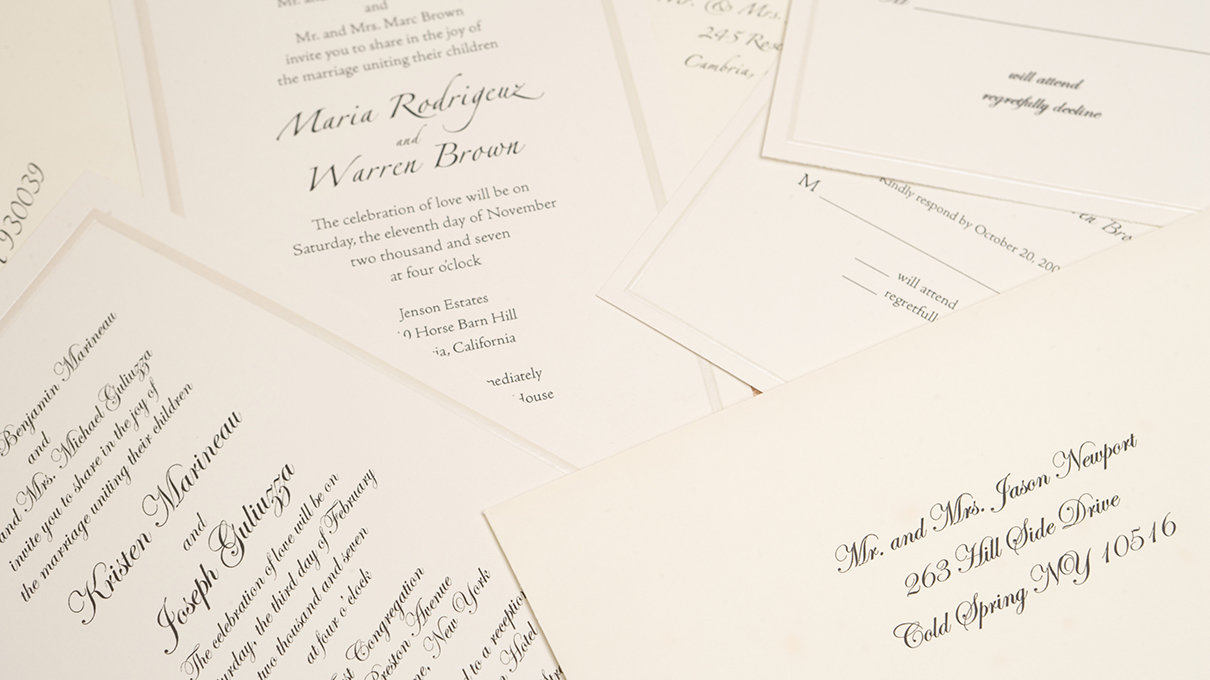 and
Mr. and Mrs. Marc Brown
invite you to share in the joy of
the marriage uniting their children
Maria Rodrigeuz
and
Warren Brown
The celebration of love will be on
Saturday, the eleventh day of November
two thousand and seven
at four o'clock
Jenson Estates
Horse Barn Hill
California
Mr. & Mrs.
245
Cambria,
will attend
regretfully decline
M
Kindly respond by October 20,
will attend
930039
Benjamin Marineau
and
and Mrs. Michael Guliuzza
invite you to share in the joy of
the marriage uniting their children
Kristen Marineau
and
Joseph Guliuzza
The celebration of love will be on
the third day of February
two thousand and seven
at four o'clock
Congregation
Preston Avenue
New York
to a reception
Hotel
Mr. and Mrs. Jason Newport
263 Hill Side Drive
Cold Spring NY 10516